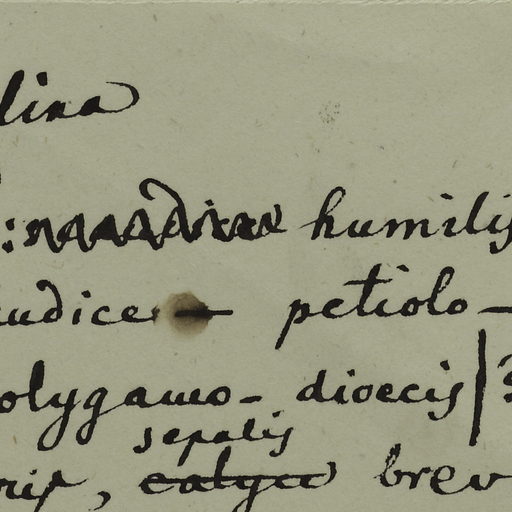 lina
: humilis
udice — petiolo-
olygamo-dioecis | 
sepalis
ris, calyce brev